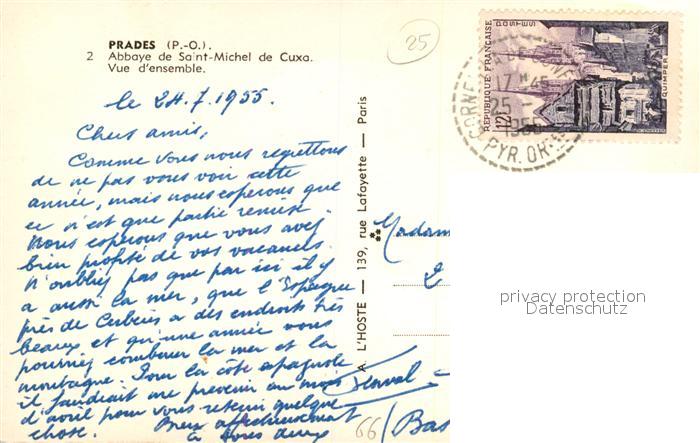 PRADES (P.-O.).
2 Abbaye de Saint-Michel de Cuxa.
Vue d'ensemble.
25
le 24.7.1955.
Chers amis,
Comme vous nous regrettons
de ne pas vous voir cette
année, mais nous espérons que
ce n'est que partie remise.
Nous espérons que vous avez
bien profité de vos vacances.
N'oubliez pas que par ici il y
a aussi la mer, que l'Espagne
près de Cerbère a des endroits très
beaux et qu'une année vous
pourriez combiner la mer et la
montagne. Pour la côte espagnole
il faudrait me prévenir au mois
d'avril pour vous retenir quelque
chose. Bien affectueusement
à vous deux
A. L'HOSTE — 139, rue Lafayette — Paris
Madam
2
66
(Bas
POSTES
REPUBLIQUE FRANÇAISE
12F
QUIMPER
17H45
25 -
1955
PYR. OR.
privacy protection
Datenschutz